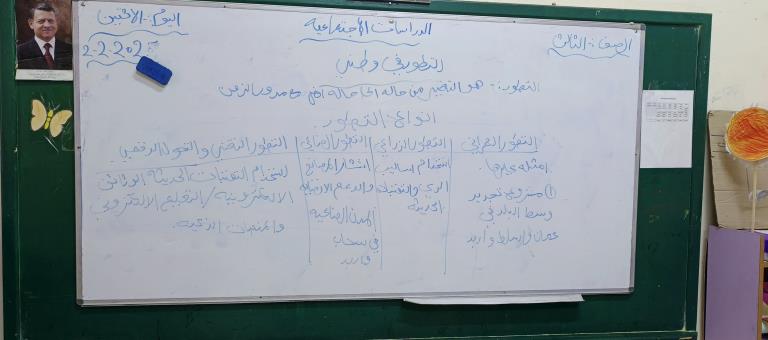 الدراسات الاجتماعية
اليوم:- الاثنين
2-2-202
الصف:- الثالث
التطور في وطني
التطور:- هو التغير من حالة الى حالة مع مرور الزمن
انواع التطور
التطور العمراني
امثلة عليها
① مشروع تجديد
وسط البلد في
عمان والسلط واربد
التطور الزراعي
استخدام اساليب
الري والتقنيات
الحديثة
التطور الصناعي
انتشار المصانع
والدعم
المدن الصناعية
في سحاب
واربد
التطور التقني والتحول الرقمي
استخدام التقنيات الحديثة الوثائق
الالكترونية / التعليم الالكتروني
والمنصات الذكية